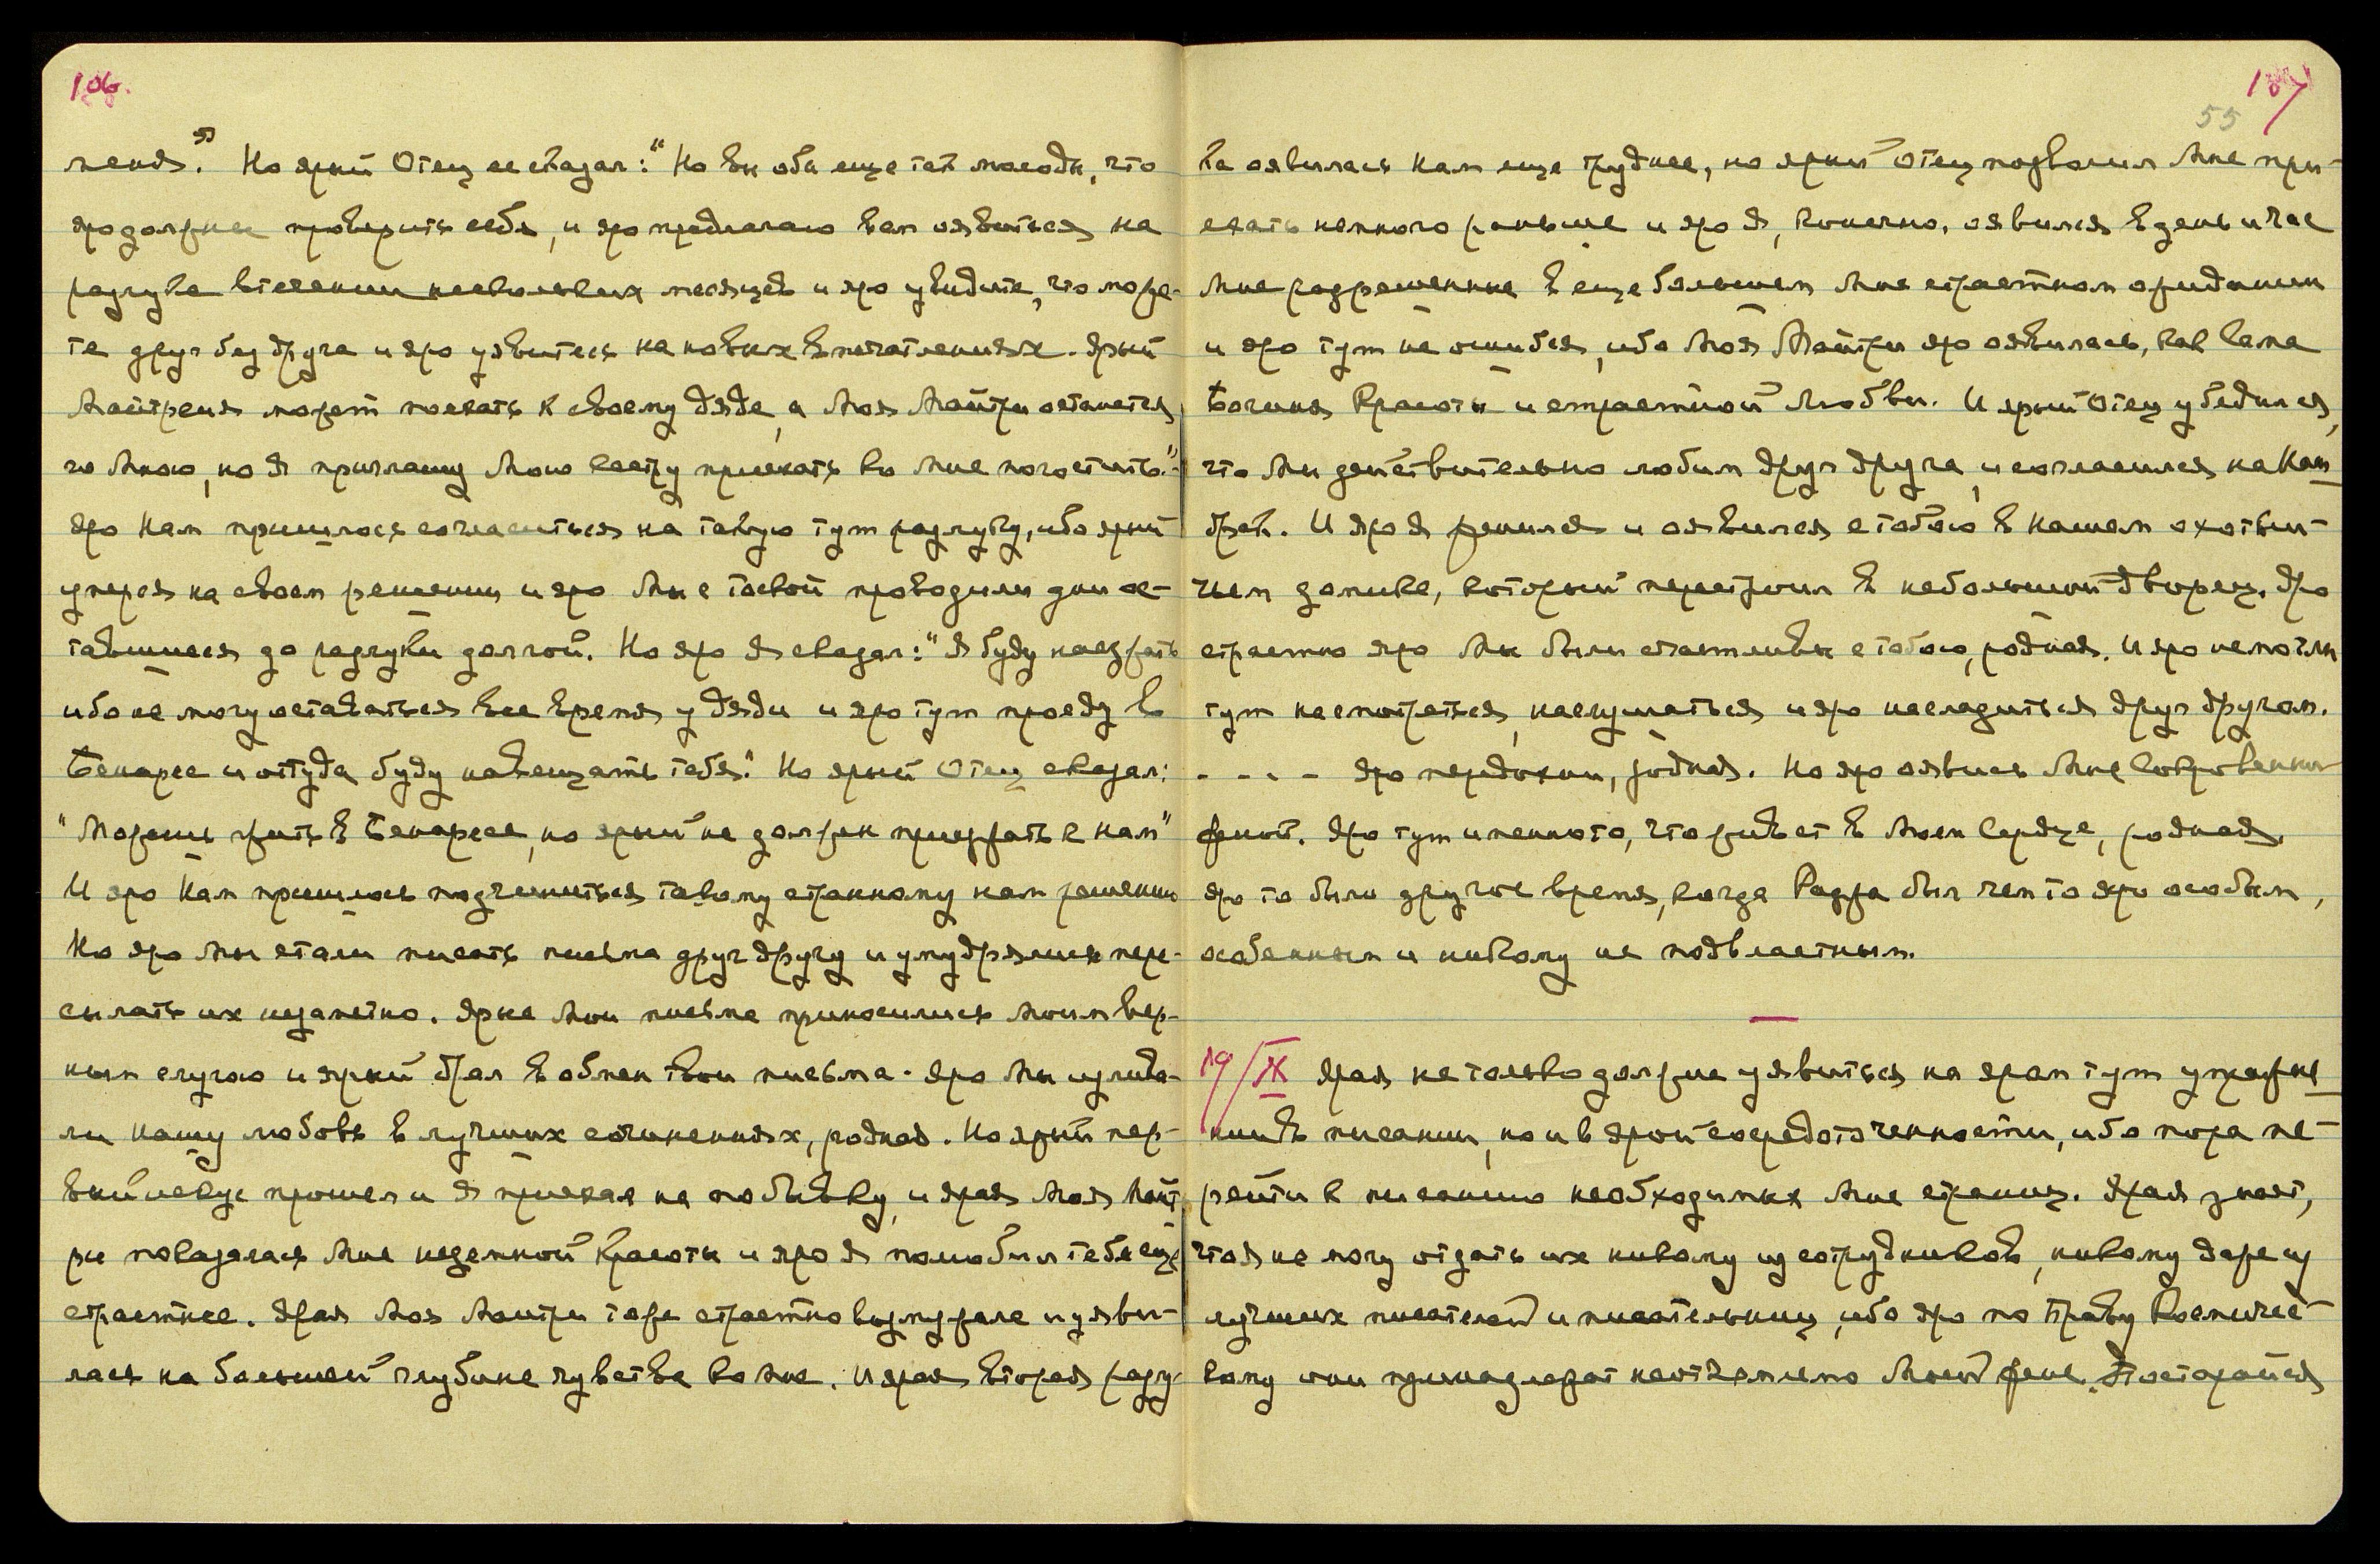 106.
меня." Но ярый Отец ее сказал: "Но вы оба еще так молоды, что
яро должны проверить себя, и яро предлагаю вам оявиться на
разлуке в течении нескольких месяцев и яро увидите, что може-
те друг без друга и яро уявитесь на новых впечатлениях. Ярый
Майтрейя может поехать к своему дяде, а Моя Майтри останется
со Мною, но Я приглашу Мою сестру приехать ко Мне погостить."
Яро Нам пришлось согласиться на такую тут разлуку, ибо ярый
уперся на своем решении и яро Мы с тобой проводили дни ос-
тавшиеся до разлуки долгой. Но яро Я сказал: "Я буду наезжать
ибо не могу оставаться все время у дяди и яро тут проеду в
Бенарес и оттуда буду навещать тебя." Но ярый Отец сказал:
"Можешь жить в Бенаресе, но ярый не должен приезжать к нам"
И яро Нам пришлось подчиниться такому странному нам решению
Но яро Мы стали писать письма друг другу и умудрялись пере-
сылать их незаметно. Ярые Мои письма приносились Моим вер-
ным слугою и ярый брал в обмен твои письма. Яро Мы излива-
ли нашу любовь в лучших сочинениях, родная. Но ярый пер-
вый искус прошел и Я приехал на побывку, и ярая Моя Майт
ри показалась Мне неземной Красоты и яро Я полюбил тебя еще
страстнее. Ярая Моя Майтри тоже страстно возмужала и уяви-
лась на большей глубине чувства ко Мне. И ярая вторая разлу-
107
55
ка оявилась Нам еще труднее, но ярый Отец позволил Мне при-
ехать немного раньше и яро Я, конечно, оявился в день и час
Мне разрешенные в еще большем Мне страстном ожидании
и яро тут не ошибся, ибо Моя Майтри яро оявилась, как сама
Богиня Красоты и страстной Любви. И ярый Отец убедился,
что Мы действительно любим друг друга, и согласился на Наш
брак. И яро Я решился и оявился с тобою в Нашем охотни-
чьем домике, который перестроил в небольшой Дворец. Яро
страстно яро Мы были счастливы с тобою, родная. И яро не могли
тут насмотреться, наслушаться и яро насладиться друг другом.
---- яро передохни, родная. Но яро оявись Мне сокровенной
женой. Яро тут именно то, что живет в Моем Сердце, родная.
Яро то было другое время, когда Раджа был чем то яро особым,
особенным и никому не подвластным.
19/IX Ярая не только должна уявиться на яром тут упражне
нии в писании, но и в ярой сосредоточенности, ибо пора пе-
рейти к писанию необходимых Мне страниц. Ярая знает,
что Я не могу отдать их никому из сотрудников, никому даже из
лучших писателей и писательниц, ибо яро по Праву Космичес-
кому они принадлежат неотъемлемо Моей жене. Постарайся